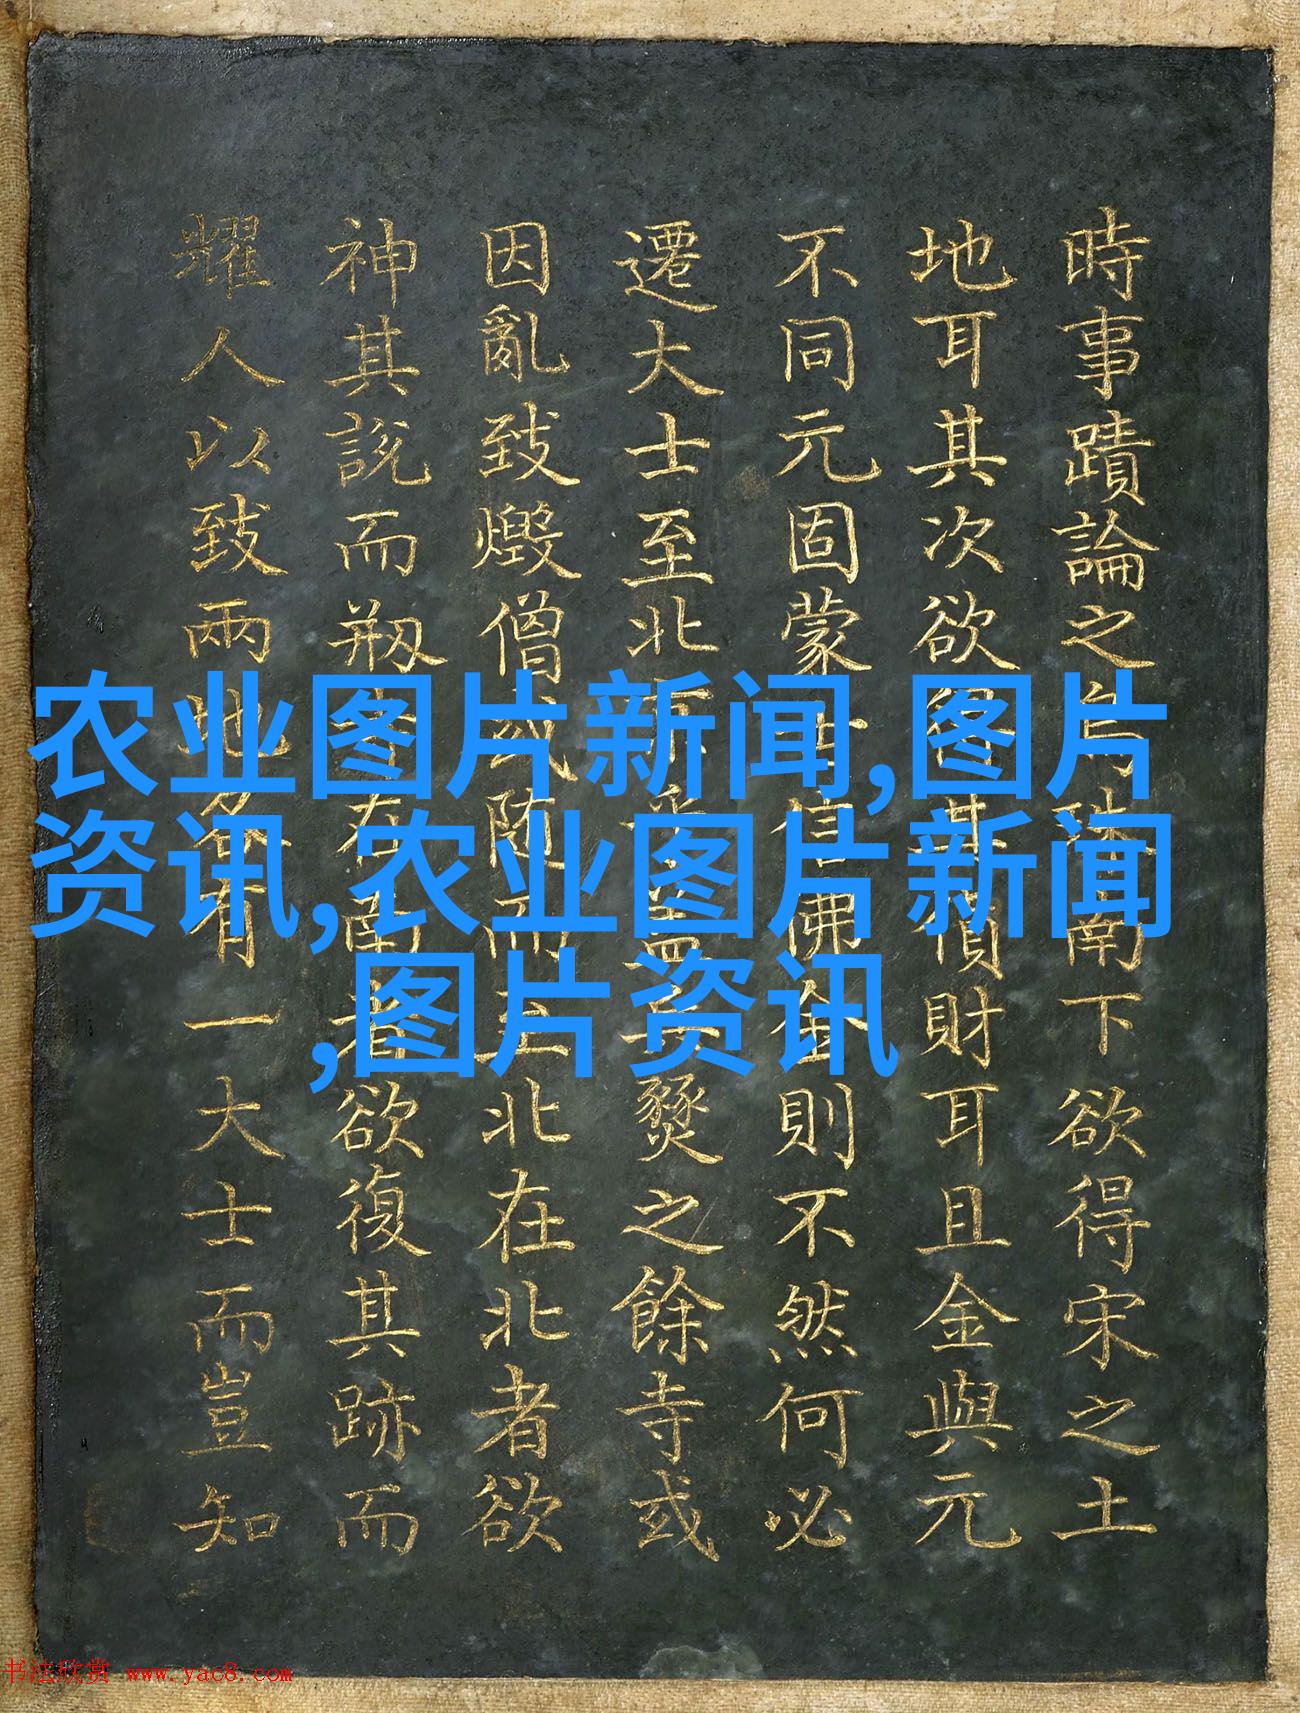 時事蹟論之南下欲得宋之土
地耳其次欲得其財耳且金與元
不同元固蒙信佛金則不然何必
遷大士至北乎盖兵燹之餘寺或
因亂致燬僧或随而之北在北者欲
神其說而在南者欲復其跡而
耀人以致兩地各有一大士而豈知
农业图片新闻,图片
资讯,农业图片新闻
,图片资讯
书法欣赏 www.yac8.com